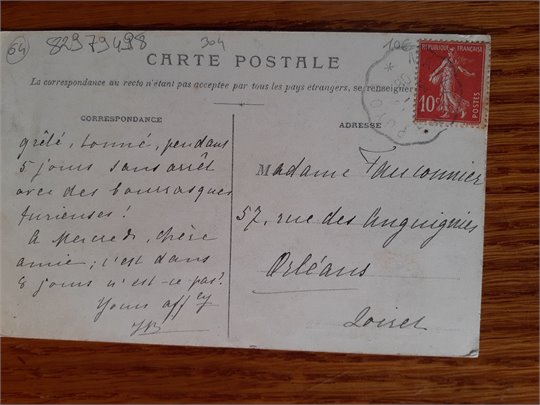 64
82979498
304
106
CARTE POSTALE
La correspondance au recto n'étant pas acceptée par tous les pays étrangers, se renseigner
CORRESPONDANCE
ADRESSE
RÉPUBLIQUE FRANÇAISE
10c
POSTES
grêlé, tonné, pendant
5 jours sans arrêt
avec des bourrasques
furieuses!
A Mercredi, chère
amie; c'est dans
8 jours n'est-ce pas?
Yours affly
Madame Fauconnier
57, rue des Anguignis
Orléans
Loiret